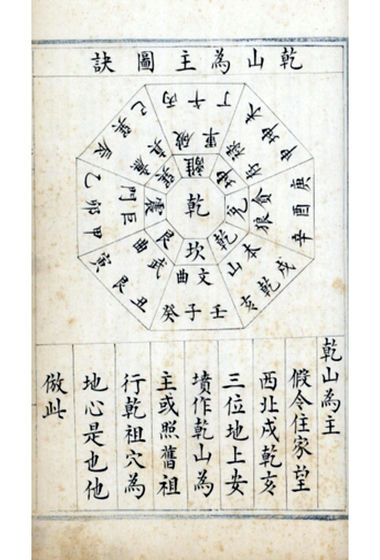 乾山為主圖訣
乾
離
破軍
丙午丁
坤
未坤申
兌
貪狼
庚酉辛
乾
本山
戌乾亥
坎
文曲
壬子癸
艮
武曲
丑艮寅
震
巨門
甲卯乙
巽
廉貞
辰巽巳
乾山為主
假令住家望
西北戌乾亥
三位地上安
墳作乾山為
主或照舊祖
行乾祖穴為
地心是也他
倣此